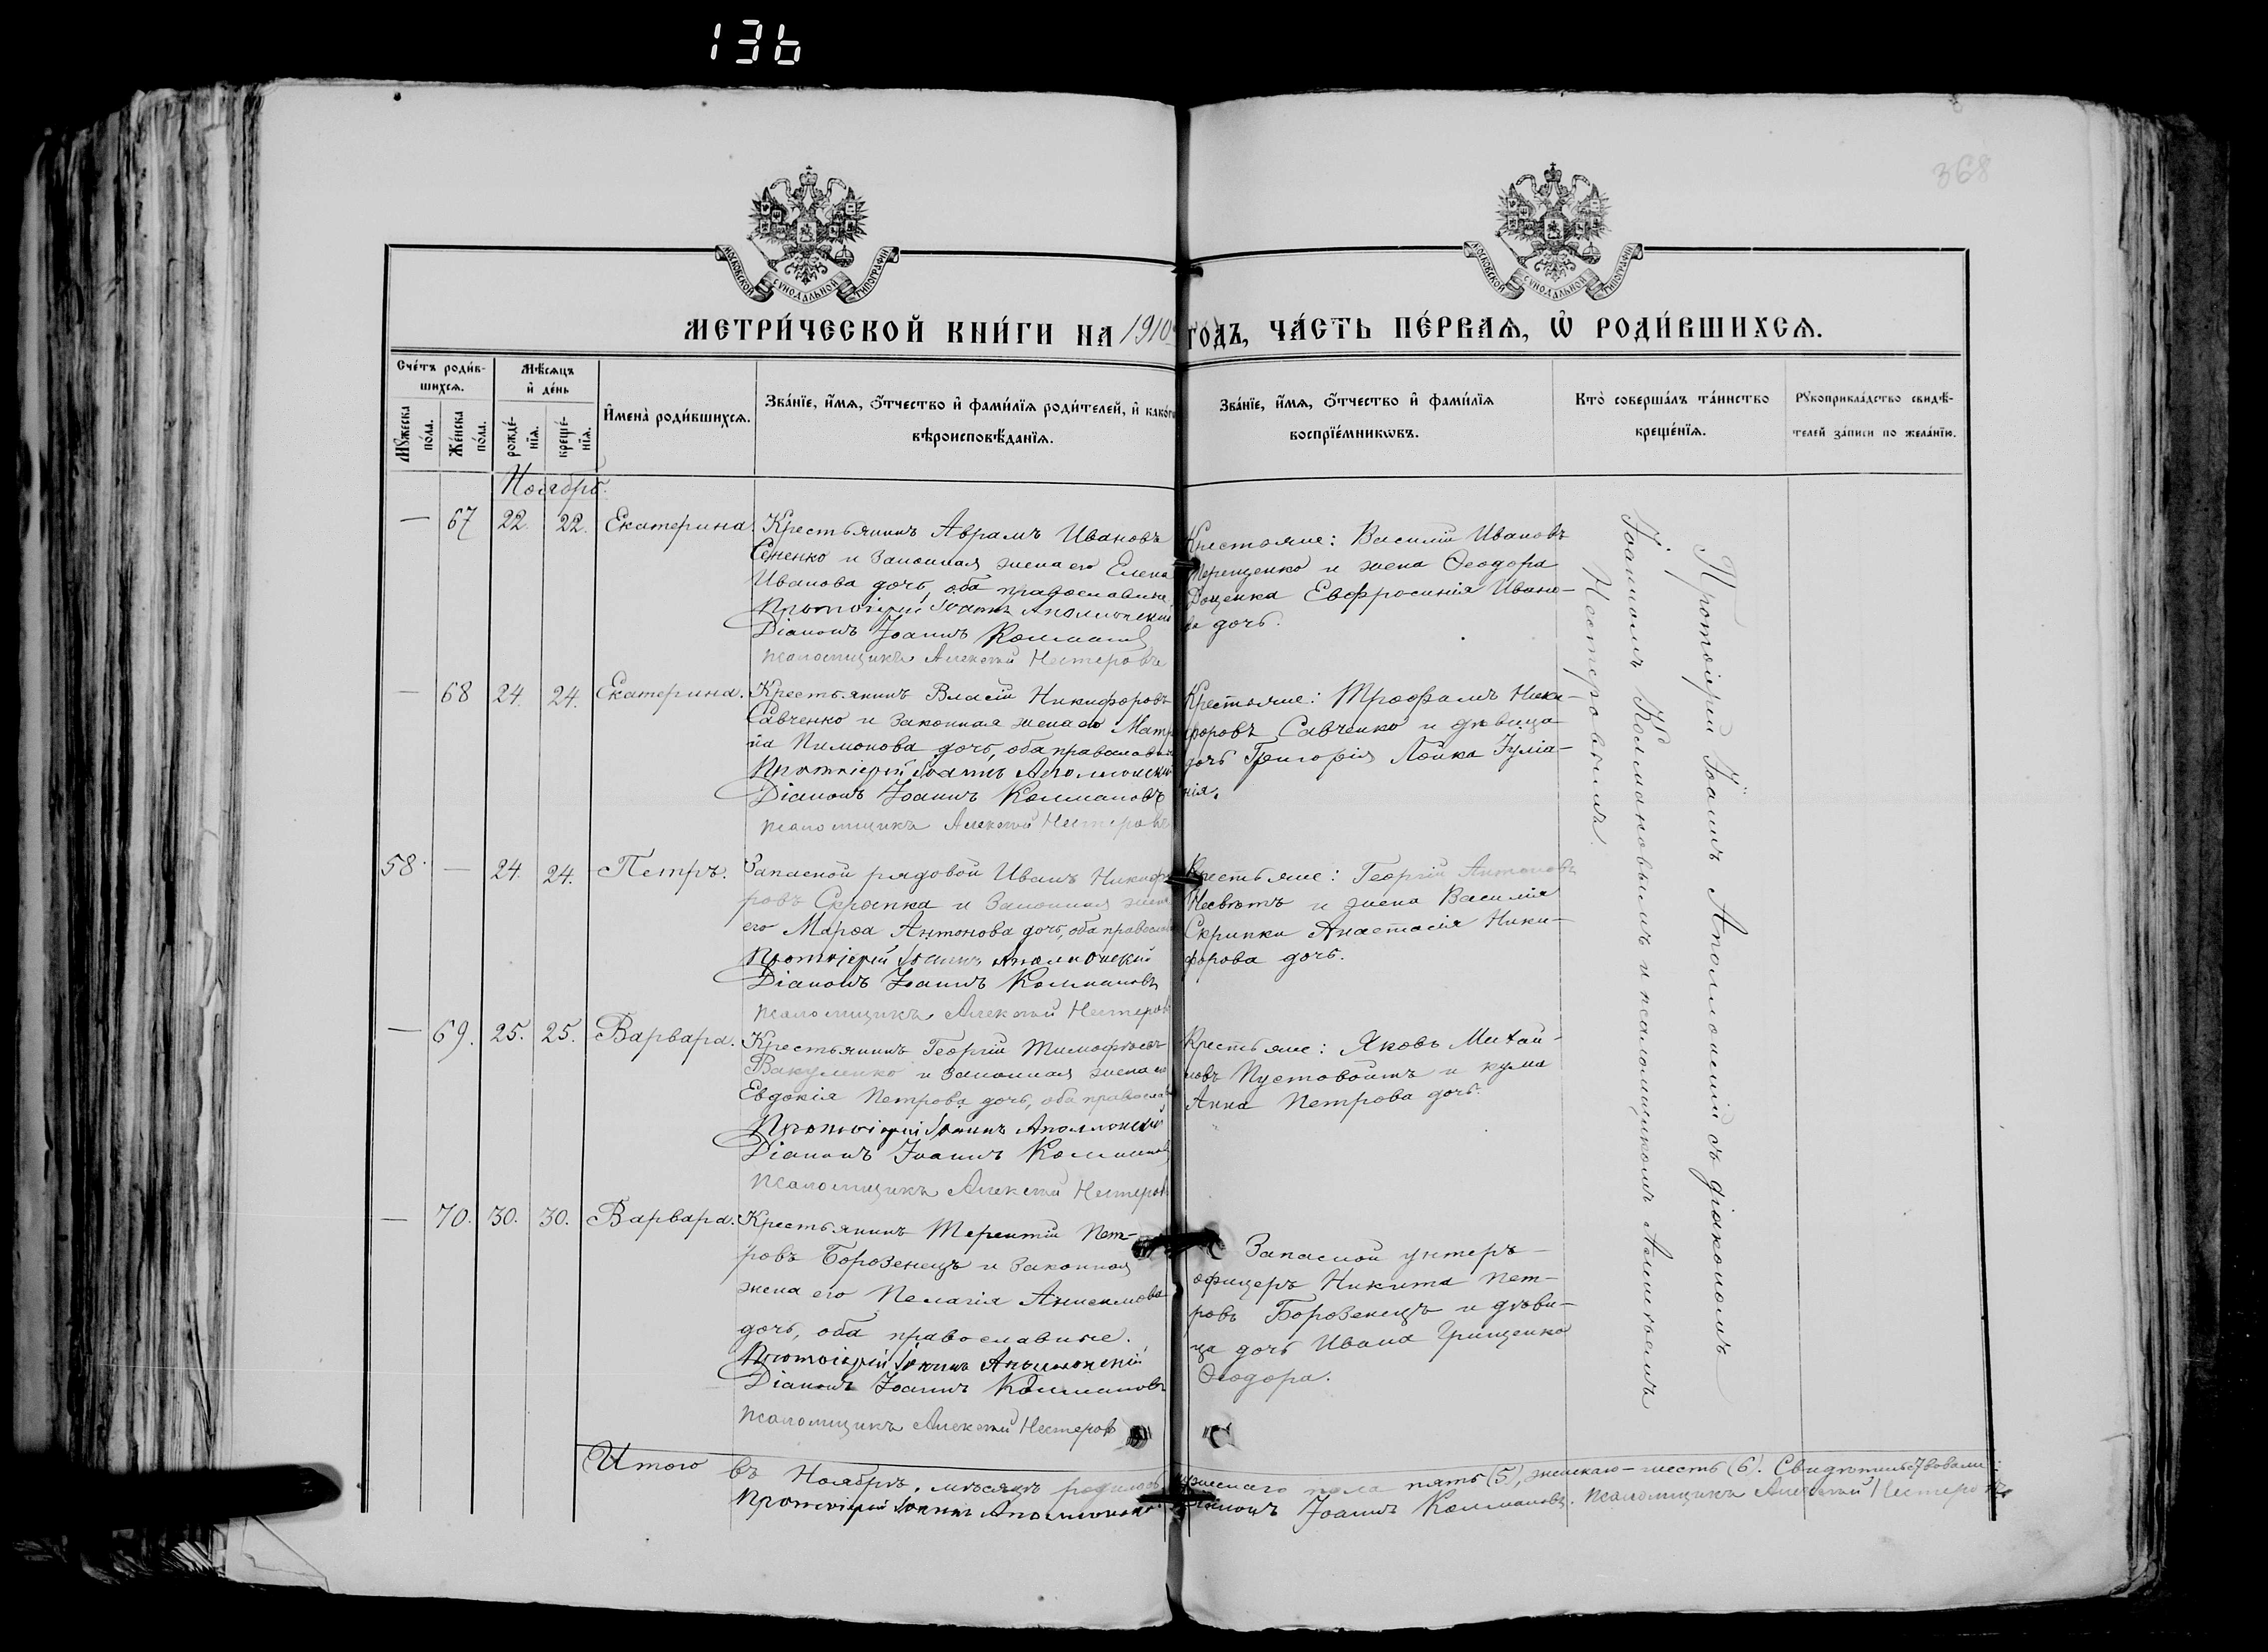 136
368
МОСКОВСКОЙ СУНОДАЛЬНОЙ ТИПОГРАФІИ
МОСКОВСКОЙ СУНОДАЛЬНОЙ ТИПОГРАФІИ
МЕТРИ́ЧЕСКОЙ КНИ́ГИ НА 1910 ГОДЪ, ЧА́СТЬ ПЕ́РВАѦ, Ѡ҆ РОДИ́ВШИХСѦ.
Сче́тъ роди́в-
шихсѧ.
Мꙋ́жеска по́ла.
Же́нска по́ла.
Мѣ́сѧцъ
и҆ де́нь
рожде́-
нїѧ.
креще́-
нїѧ.
И҆мена̀ роди́вшихсѧ.
Зва́нїе, и҆́мѧ, ѻ҆́тчество и҆ фами́лїѧ роди́телей, и҆ како́гѡ
вѣроисповѣ́данїѧ.
Зва́нїе, и҆́мѧ, ѻ҆́тчество и҆ фами́лїѧ
воспрїе́мникѡвъ.
Кто̀ соверша́лъ та́инство
креще́нїѧ.
Рꙋкоприкла́дство свидѣ́-
телей за́писи по жела́нїю.
Ноябрь.
— 67 22. 22. Екатерина. Крестьянинъ Аврамъ Ивановъ
Сененко и законная жена его Елена
Иванова дочь, оба православные.
Протоіерей Іоаннъ Аполлонскій
Діаконъ Іоаннъ Колмановъ
Псаломщикъ Алексѣй Нестеровъ
Крестьяне: Василій Ивановъ
Терещенко и жена Ѳеодора
Доценка Евфросинія Ивано-
ва дочь.
— 68 24. 24. Екатерина. Крестьянинъ Власій Никифоровъ
Савченко и законная жена его
Пимонова дочь, оба православные
Протоіерей Іоаннъ Аполлонскій
Діаконъ Іоаннъ Колмановъ
Псаломщикъ Алексѣй Нестеровъ
Крестьяне: Трофимъ Ники-
форовъ Савченко и дѣвица
дочь Григорія Лойка Іуліа-
нія.
58. — 24. 24. Петръ. Запасной рядовой Иванъ Никифо
ровъ Скрипка и законная жена
его Марѳа Антонова дочь, оба православ
Протоіерей Іоаннъ Аполлонскій
Діаконъ Іоаннъ Колмановъ
Псаломщикъ Алексѣй Нестеровъ
Крестьяне: Георгій Антоновъ
Несвѣтъ и жена Василія
Скрипки Анастасія Ники-
форова дочь.
— 69. 25. 25. Варвара. Крестьянинъ Георгій Тимоѳѣевъ
Вакуленко и законная жена его
Евдокія Петрова дочь, оба православ
Протоіерей Іоаннъ Аполлонскій
Діаконъ Іоаннъ Колмановъ
Псаломщикъ Алексѣй Нестеровъ
Крестьяне: Яковъ Михай-
ловъ Пустовойтъ и кума
Анна Петрова дочь.
— 70. 30. 30. Варвара. Крестьянинъ Терентій Пет-
ровъ Борозенецъ и законная
жена его Пелагія Анисимова
дочь, оба православные.
Протоіерей Іоаннъ Аполлонскій
Діаконъ Іоаннъ Колмановъ
Псаломщикъ Алексѣй Нестеровъ
Запасной унтеръ-
офицеръ Никита Пет-
ровъ Борозенецъ и дѣви-
ца дочь Ивана Грищенко
Ѳеодора.
Протоіерей Іоаннъ Аполлонскій съ діакономъ
Іоанномъ Колмановымъ и псаломщикомъ Алексѣемъ
Нестеровымъ.
Итого въ Ноябрѣ мѣсяцѣ родилось мужескаго пола пять (5), женскаго — шесть (6). Свидѣтельствовали:
Протоіерей Іоаннъ Аполлонскій. Діаконъ Іоаннъ Колмановъ. Псаломщикъ Алексѣй Нестеровъ